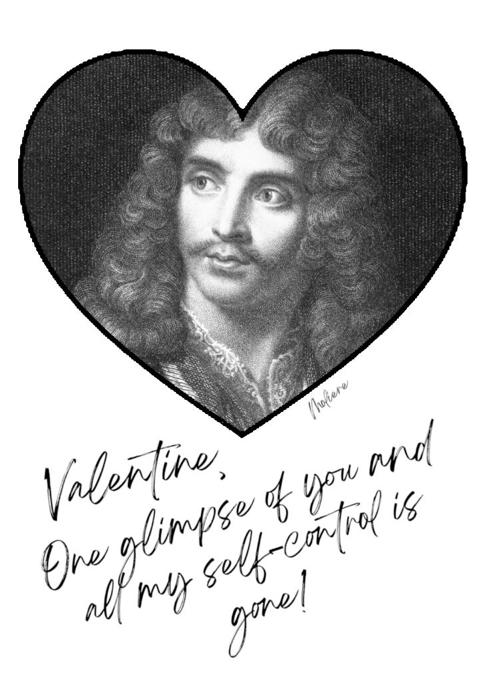 Moliere
Valentine,
One glimpse of you and
all my self-control is
gone!